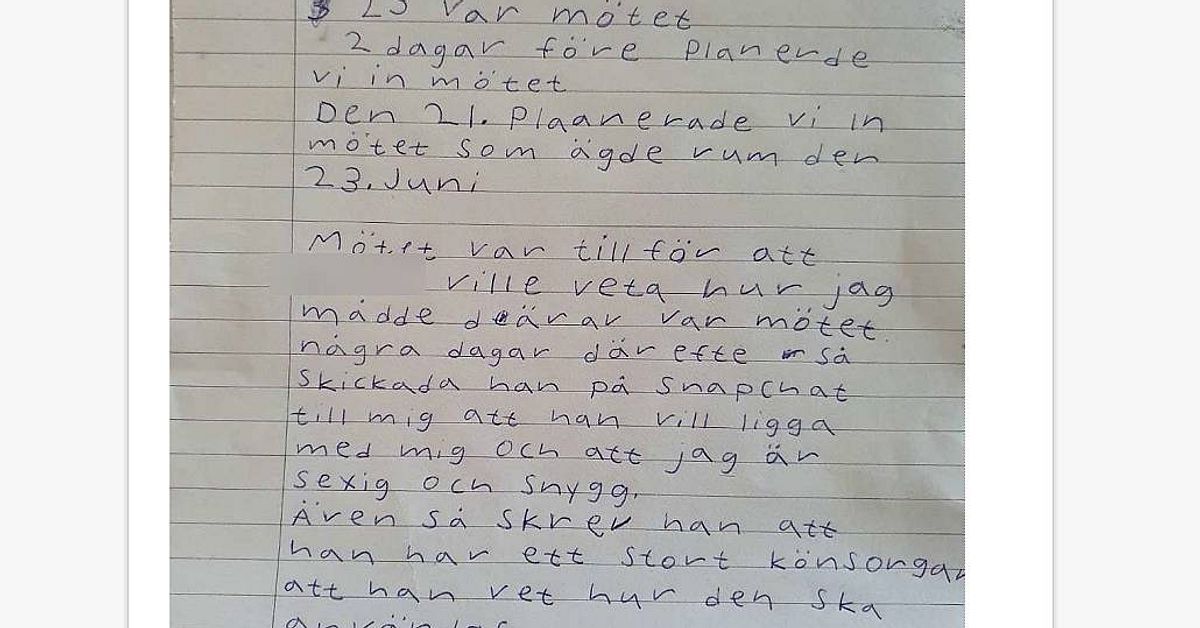 23 var mötet
2 dagar före Planerde
vi in mötet
Den 21. Plaanerade vi in
mötet som ägde rum den
23. Juni
Mötet var till för att
ville veta hur jag
mådde därav var mötet.
några dagar där efte så
skickada han på snapchat
till mig att han vill ligga
med mig och att jag är
sexig och snygg.
Även så skrev han att
han har ett stort könsorgan
att han vet hur den ska